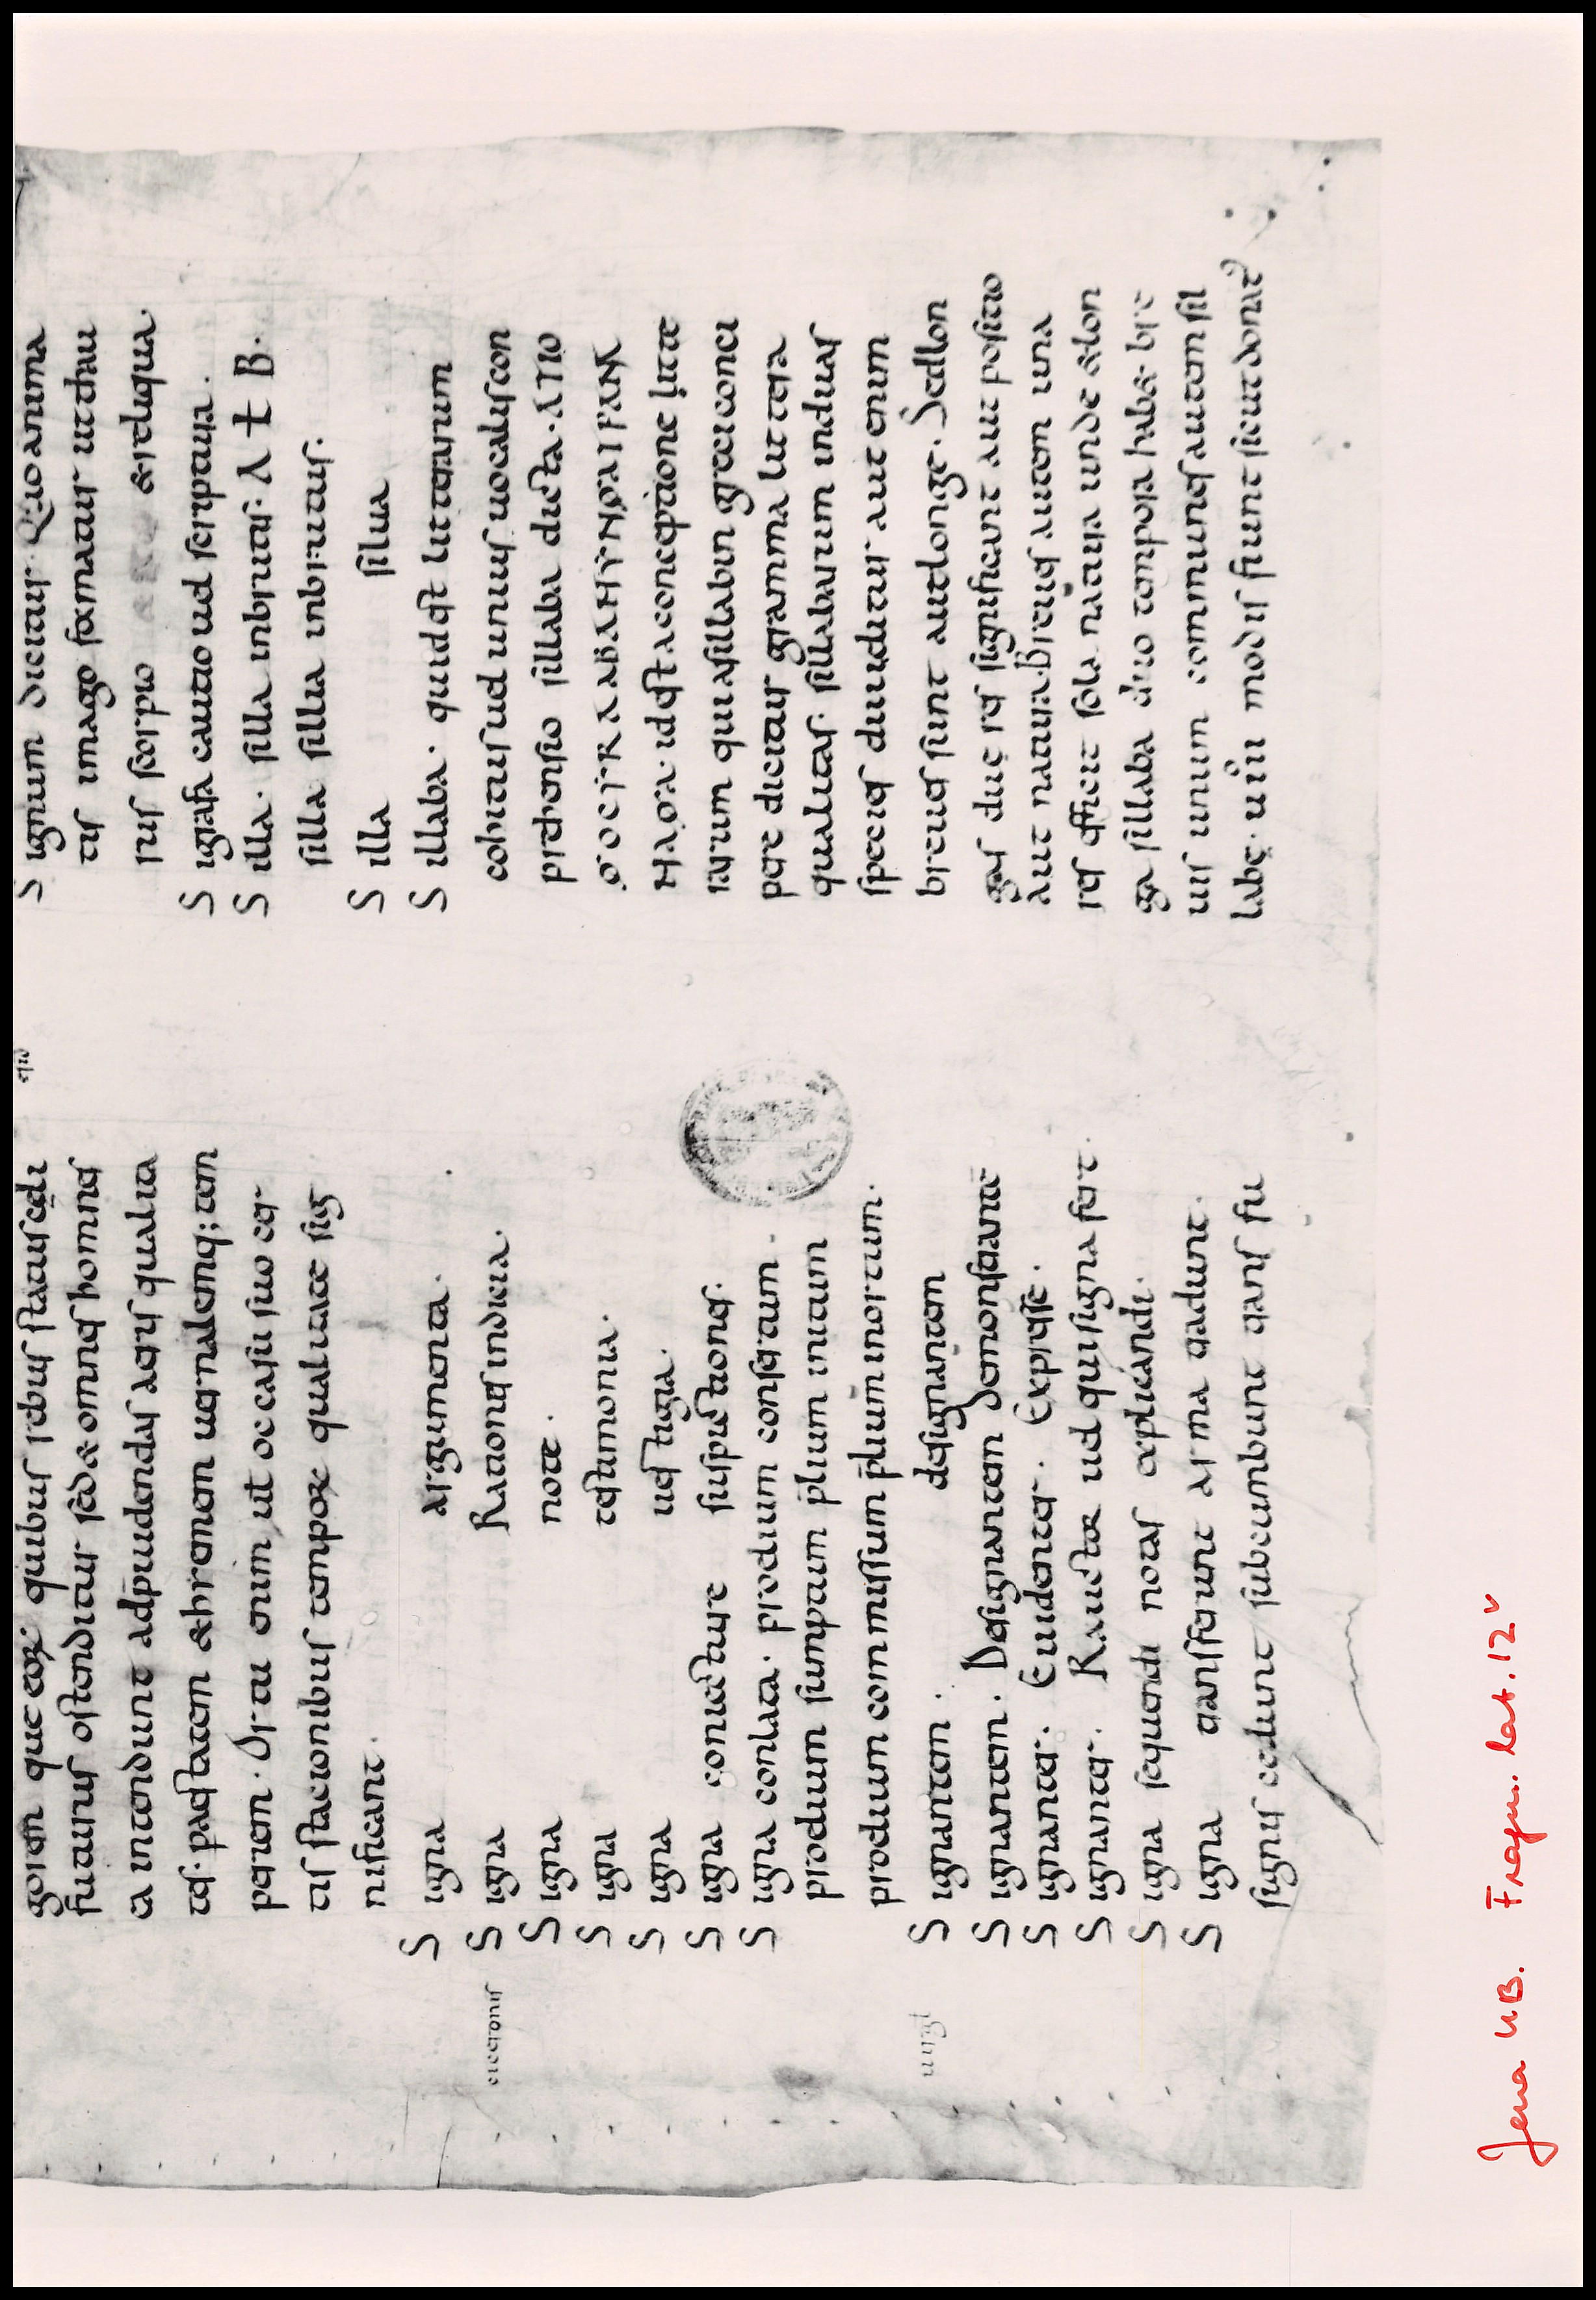 gorem que eorum quibus rebus status cęli
futurus ostenditur sed & omnes homnes
ea intendunt adp̄uidendas aeris qualita
tes. paestatem & hiemem uernalemq; tem
periem. Ortu enim ut occasu suo cer
tis stacionibus tempore qualitate sig
nificant.
Signa argumenta.
ciceronis
Signa Rationes indicia.
Signa note.
Signa testimonia.
Signa uestigia.
Signa coniecture suspectiones.
Signa conlata. proelium consertum.
proelium sumptum p̄lium initum
proelium commissum p̄lium inortum.
uirgl
Signantem. designantem
Signantem. Designantem demonstrante
Signanter. Euidenter. Expresse.
Signanter. Rauctor uel qui signa fert.
Signa sequendi notas explicandi.
Signa transferunt arma tradunt.
signis cedunt subcumbunt trans fu
Signum dicitur. Quo anima
tis imago formatur ut thau
rus scorpio & reliqua.
Sigrafa cautio uel scriptura.
Silla. silla inbrutis: Λ t B.
silla sillia inbrutus.
Silla silua
Sillaba. quid est litterarum
cohitus uel unius uocalis con
prehensio sillaba dicta. ΑΠΟ
Haora. id est a conceptione litte
rarum qui a sillabin greci conci
pere dicitur gramma littera
qualitas. sillabarum in duas
species diuiditur aut enim
breues sunt aut longe. Sed lon
gas due res significant aut positio
aut natura. Breues autem una
res efficit sola natura unde & lon
ga sillaba duo tempora hab& bre
uis unum communes autem sil
labę. uiii modis fiunt sicut donat
Jena UB. Fragm. lat. 12v